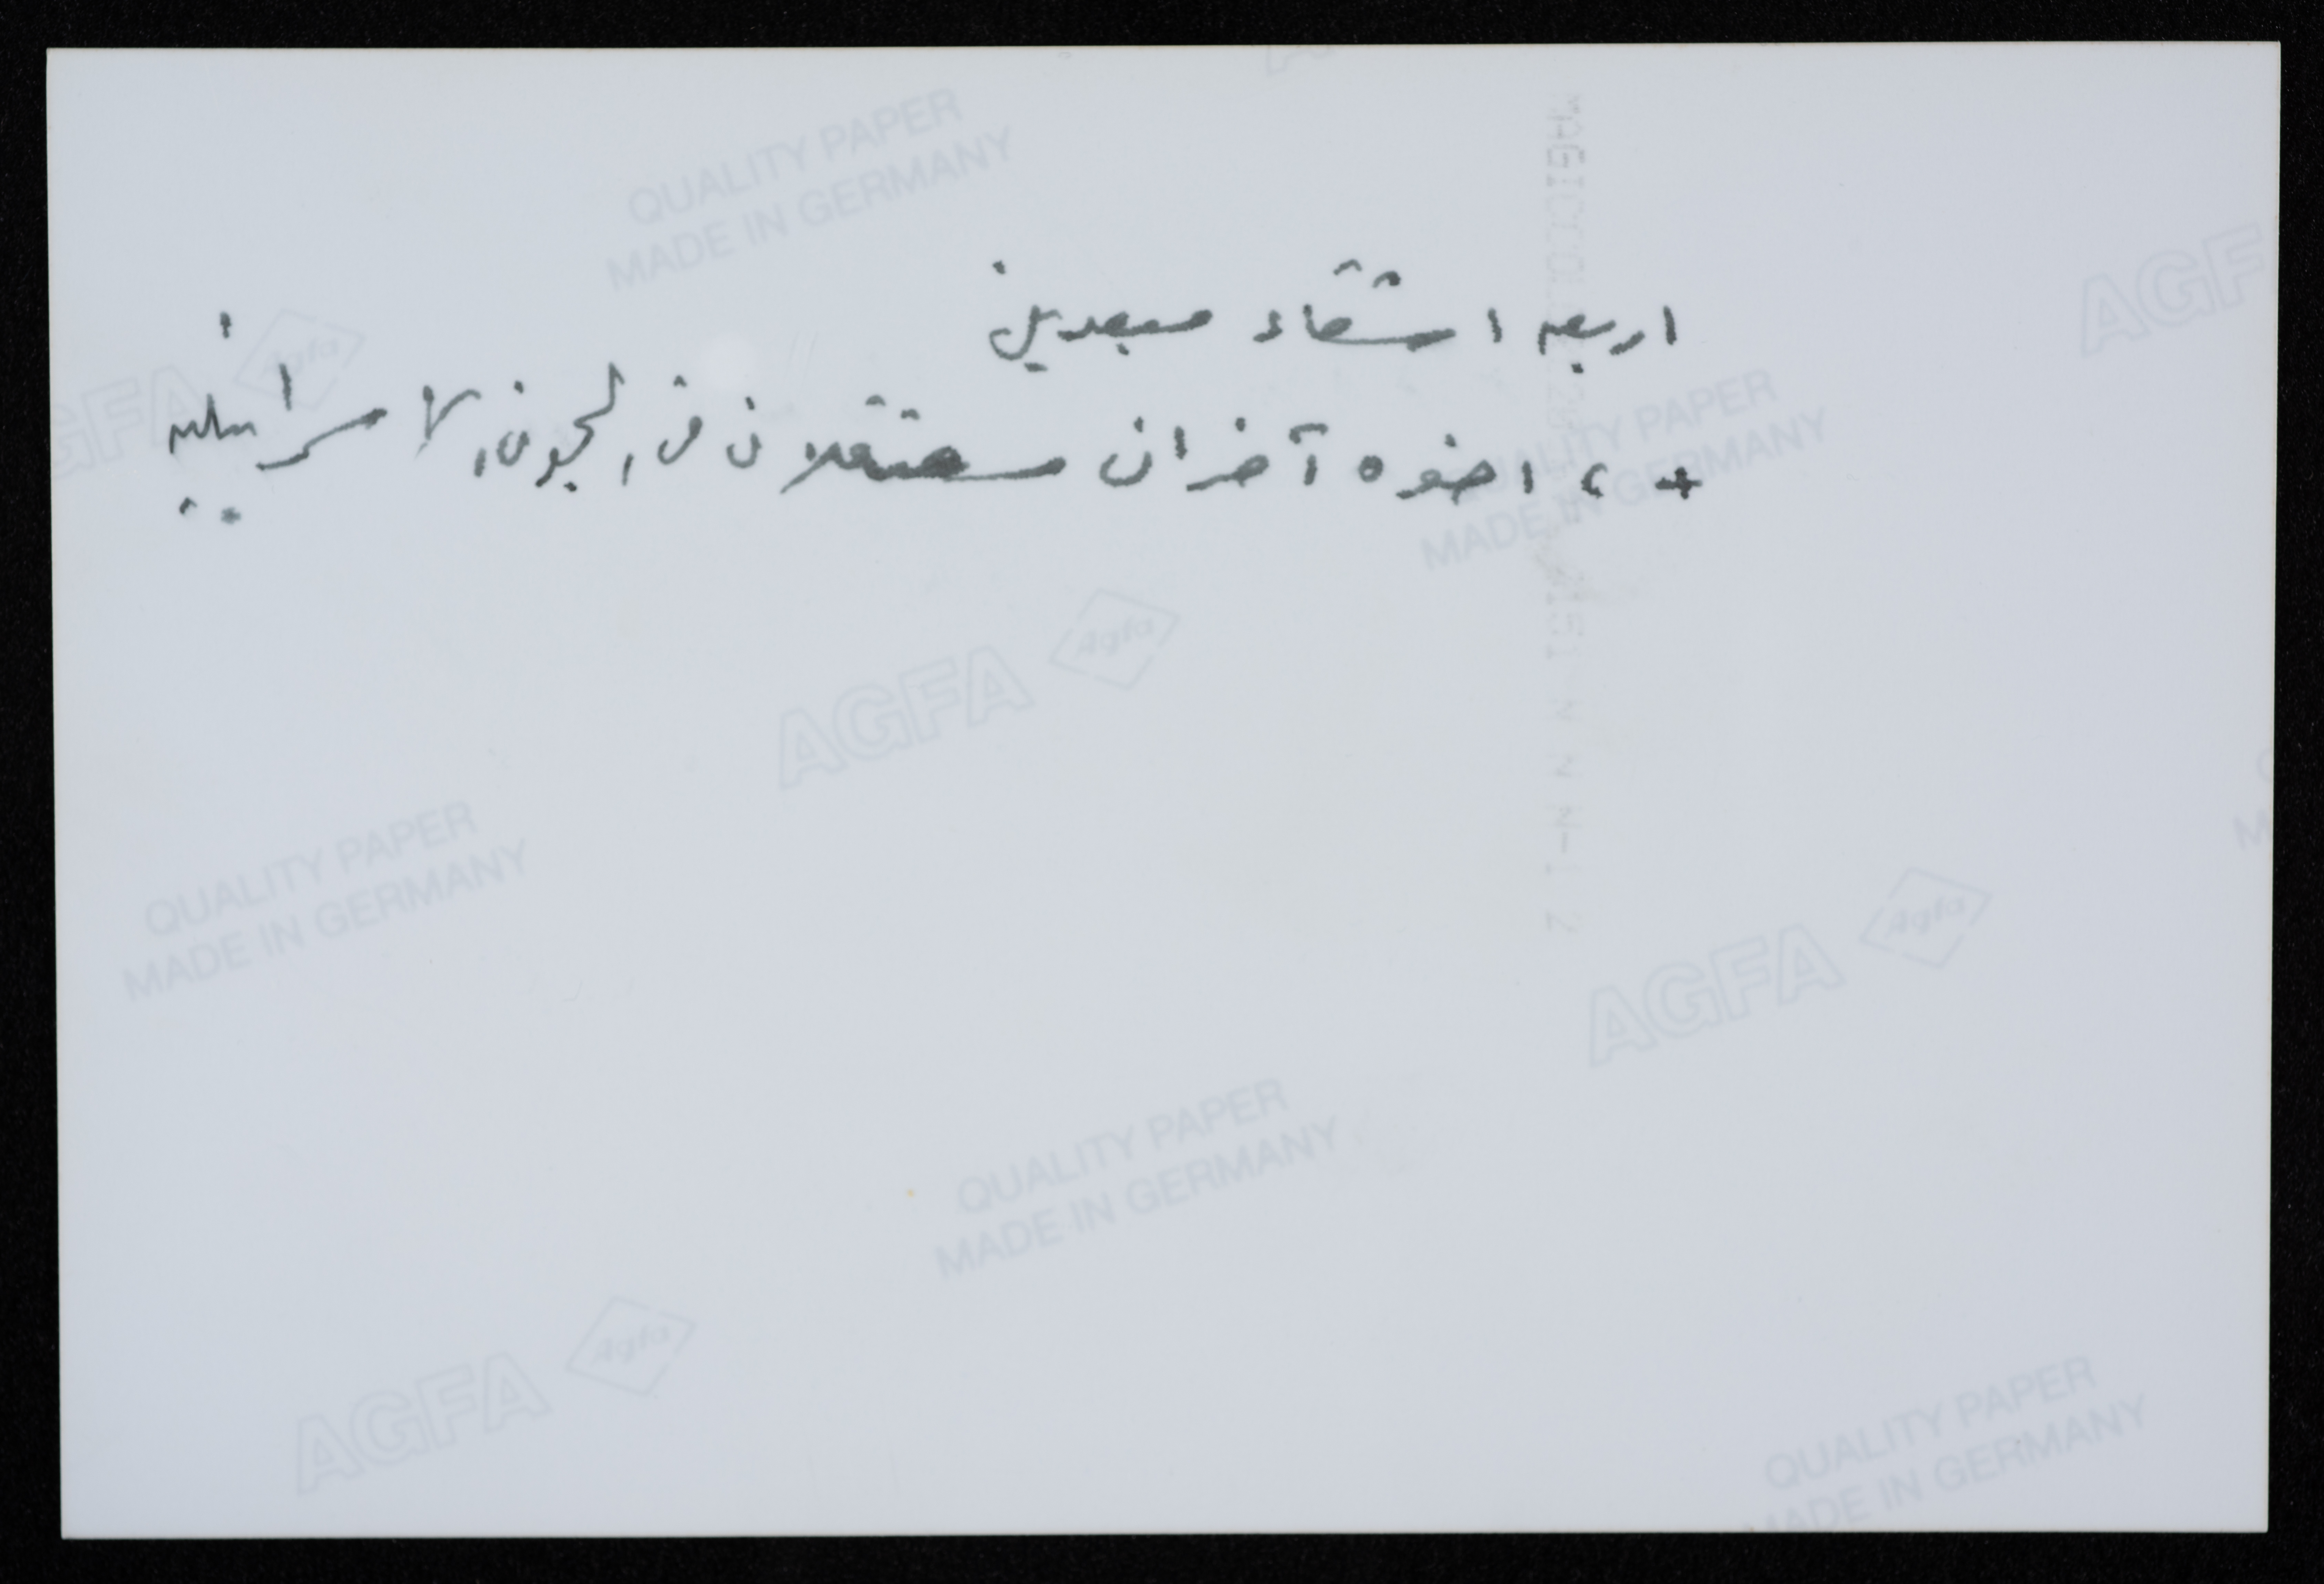 اربعه اشقاء مبعدين
+ ٢ اخوه آخران معتقلان في السجون الاسرائيليه
QUALITY PAPER
MADE IN GERMANY
AGFA Agfa
AGFA
QUALITY PAPER
MADE IN GERMANY
AGFA Agfa
QUALITY PAPER
MADE IN GERMANY
AGFA Agfa
QUALITY PAPER
MADE IN GERMANY
AGFA Agfa
QUALITY PAPER
MADE IN GERMANY